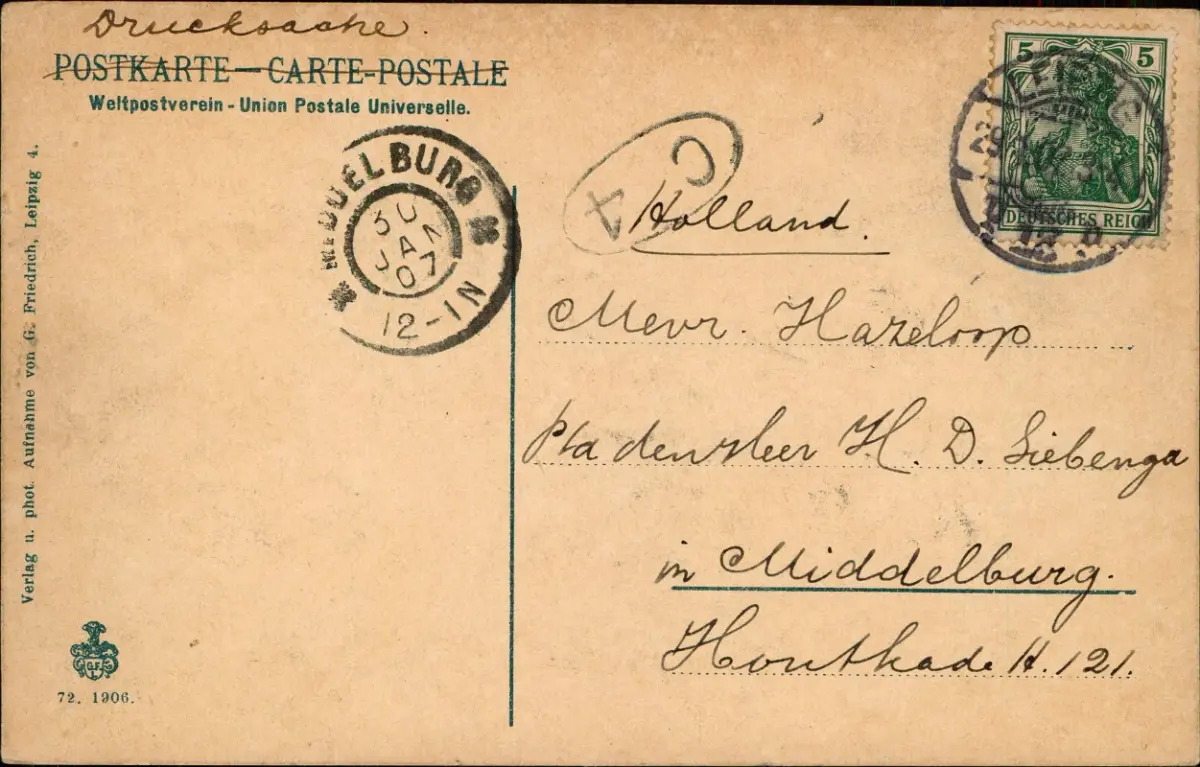 Drucksache.
POSTKARTE — CARTE-POSTALE
Weltpostverein - Union Postale Universelle.
5 5
DEUTSCHES REICH
LEIPZIG
MIDDELBURG
30 JA 07
12-1N
C 4
Holland.
Mevr. Hazeloop
den Heer H. D. Siebenga
in Middelburg.
Houtkade H. 121.
Verlag u. phot. Aufnahme von G. Friedrich, Leipzig 4.
G.F.L.
72. 1906.